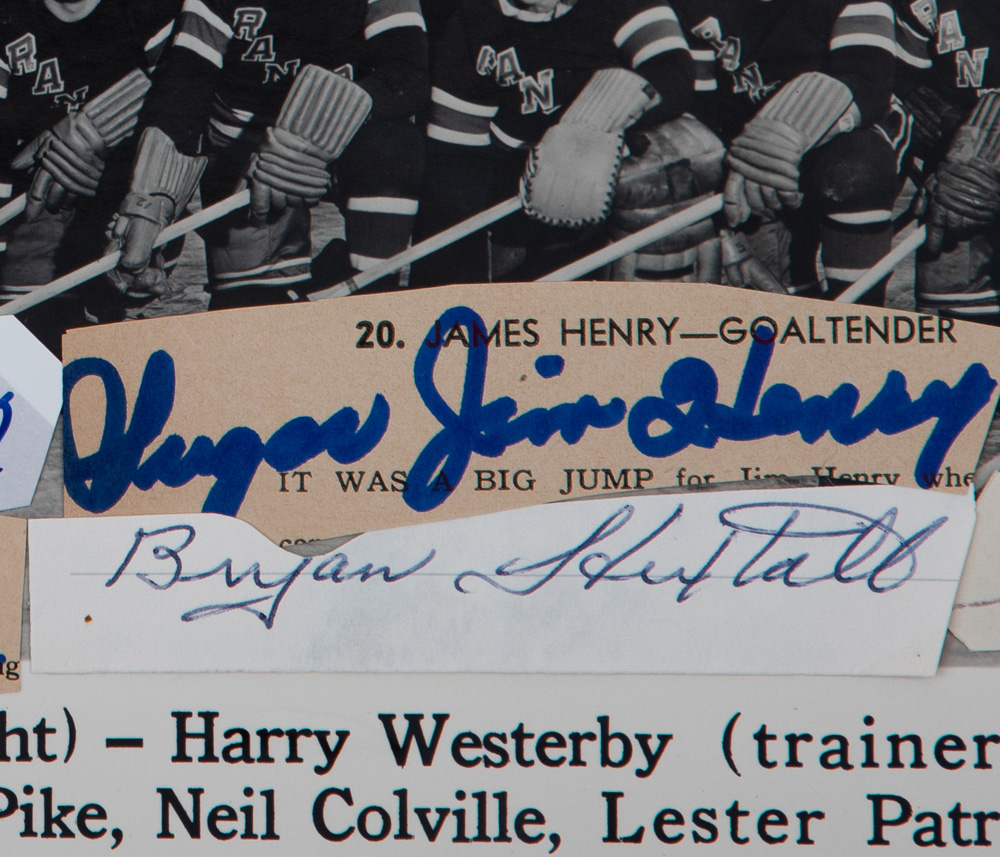 RAN
RAN
RAN
RAN
RAN
20. JAMES HENRY—GOALTENDER
Sugar Jim Henry
IT WAS A BIG JUMP for Jim Henry whe
Bryan Hextall
ig
ht) – Harry Westerby (trainer
Pike, Neil Colville, Lester Patr